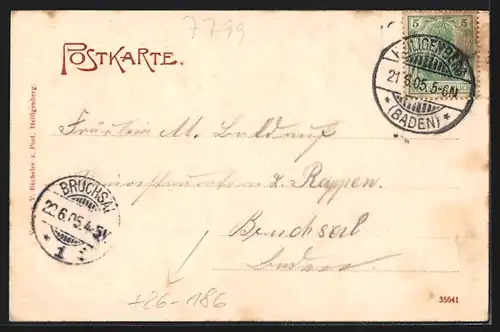 7799
POSTKARTE.
5 5
HEILIGENBERG
21.6.05.5-6N
*(BADEN)*
Fräulein M. Baldauf
z. Rappen.
Bruchsal
Baden
BRUCHSAL
22.6.05.4-5N
* 1 *
Verlag v. Bücheler z. Post, Heiligenberg.
+26-186
35641